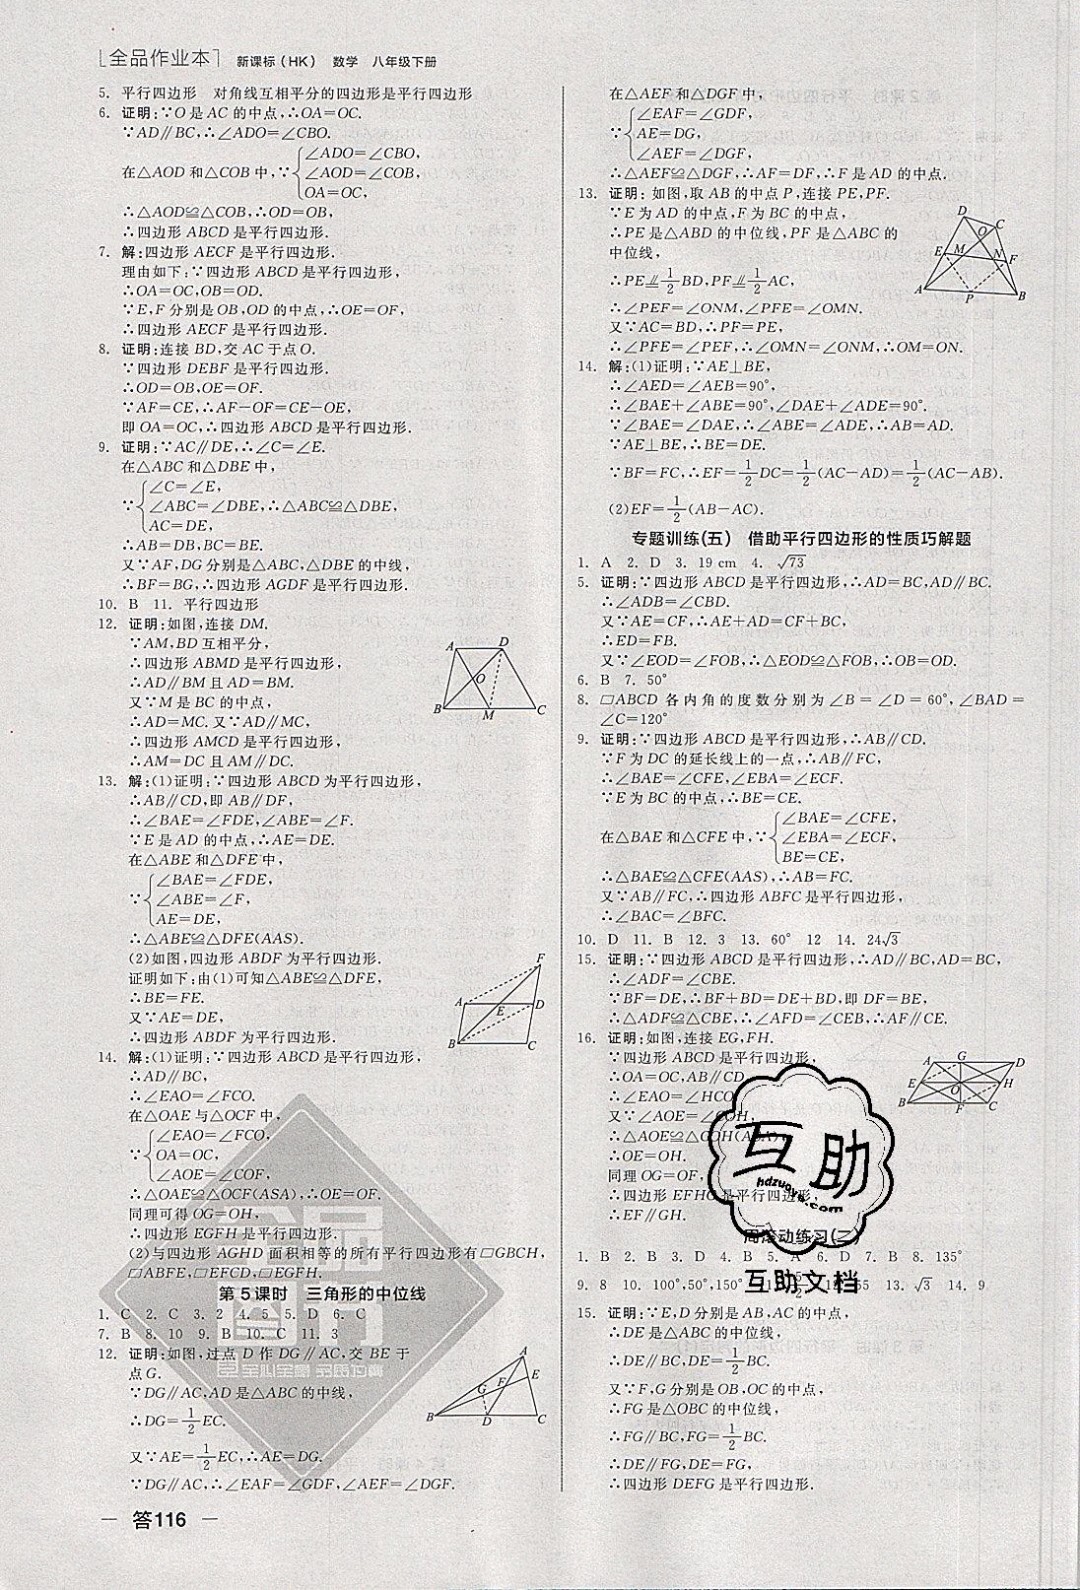 全品作业本 新课标(HK) 数学 八年级下册
5. 平行四边形 对角线互相平分的四边形是平行四边形
6. 证明:∵O是AC的中点,∴OA=OC.
∵AD∥BC,∴∠ADO=∠CBO.
在△AOD和△COB中,∵{∠ADO=∠CBO,
∠AOD=∠COB,
OA=OC,
∴△AOD≌△COB,∴OD=OB,
∴四边形ABCD是平行四边形.
7. 解:四边形AECF是平行四边形.
理由如下:∵四边形ABCD是平行四边形,
∴OA=OC,OB=OD.
∵E,F分别是OB,OD的中点,∴OE=OF,
∴四边形AECF是平行四边形.
8. 证明:连接BD,交AC于点O.
∵四边形DEBF是平行四边形.
∴OD=OB,OE=OF.
∵AF=CE,∴AF-OF=CE-OE,
即OA=OC,∴四边形ABCD是平行四边形.
9. 证明:∵AC∥DE,∴∠C=∠E.
在△ABC和△DBE中,
∵{∠C=∠E,
∠ABC=∠DBE,∴△ABC≌△DBE,
AC=DE,
∴AB=DB,BC=BE.
又∵AF,DG分别是△ABC,△DBE的中线,
∴BF=BG,∴四边形AGDF是平行四边形.
10. B 11. 平行四边形
12. 证明:如图,连接DM.
∵AM,BD互相平分,
∴四边形ABMD是平行四边形,
∴AD∥BM且AD=BM.
又∵M是BC的中点,
∴AD=MC.又∵AD∥MC,
∴四边形AMCD是平行四边形,
∴AM=DC且AM∥DC.
A D O B M C
13. 解:(1)证明:∵四边形ABCD为平行四边形,
∴AB∥CD,即AB∥DF,
∴∠BAE=∠FDE,∠ABE=∠F.
∵E是AD的中点,∴AE=DE.
在△ABE和△DFE中,
∵{∠BAE=∠FDE,
∠ABE=∠F,
AE=DE,
∴△ABE≌△DFE(AAS).
(2)如图,四边形ABDF为平行四边形.
证明如下:由(1)可知△ABE≌△DFE,
∴BE=FE.
又∵AE=DE,
∴四边形ABDF为平行四边形.
F A E D B C
14. 解:(1)证明:∵四边形ABCD是平行四边形,
∴AD∥BC,
∴∠EAO=∠FCO.
在△OAE与△OCF中,
∵{∠EAO=∠FCO,
OA=OC,
∠AOE=∠COF,
∴△OAE≌△OCF(ASA),∴OE=OF.
同理可得OG=OH,
∴四边形EGFH是平行四边形.
(2)与四边形AGHD面积相等的所有平行四边形有▱GBCH,
▱ABFE,▱EFCD,▱EGFH.
第5课时 三角形的中位线
1. C 2. C 3. 2 4. 5 5. D 6. C
7. B 8. 10 9. B 10. C 11. 3
12. 证明:如图,过点D作DG∥AC,交BE于
点G.
∵DG∥AC,AD是△ABC的中线,
∴DG=1/2EC.
又∵AE=1/2EC,∴AE=DG.
∵DG∥AC,∴∠EAF=∠GDF,∠AEF=∠DGF.
A E F G B D C
在△AEF和△DGF中,
∵{∠EAF=∠GDF,
AE=DG,
∠AEF=∠DGF,
∴△AEF≌△DGF,∴AF=DF,∴F是AD的中点.
13. 证明:如图,取AB的中点P,连接PE,PF.
∵E为AD的中点,F为BC的中点,
∴PE是△ABD的中位线,PF是△ABC的
中位线,
∴PE⫽1/2BD,PF⫽1/2AC,
∴∠PEF=∠ONM,∠PFE=∠OMN.
又∵AC=BD,∴PF=PE,
∴∠PFE=∠PEF,∴∠OMN=∠ONM,∴OM=ON.
D O C E M N F A P B
14. 解:(1)证明:∵AE⊥BE,
∴∠AED=∠AEB=90°,
∴∠BAE+∠ABE=90°,∠DAE+∠ADE=90°.
∵∠BAE=∠DAE,∴∠ABE=∠ADE,∴AB=AD.
∵AE⊥BE,∴BE=DE.
∵BF=FC,∴EF=1/2DC=1/2(AC-AD)=1/2(AC-AB).
(2)EF=1/2(AB-AC).
专题训练(五) 借助平行四边形的性质巧解题
1. A 2. D 3. 19 cm 4. √73
5. 证明:∵四边形ABCD是平行四边形,∴AD=BC,AD∥BC.
∴∠ADB=∠CBD.
又∵AE=CF,∴AE+AD=CF+BC,
∴ED=FB.
又∵∠EOD=∠FOB,∴△EOD≌△FOB,∴OB=OD.
6. B 7. 50°
8. ▱ABCD各内角的度数分别为∠B=∠D=60°,∠BAD=
∠C=120°
9. 证明:∵四边形ABCD是平行四边形,∴AB∥CD.
∵F为DC的延长线上的一点,∴AB∥FC,
∴∠BAE=∠CFE,∠EBA=∠ECF.
∵E为BC的中点,∴BE=CE.
在△BAE和△CFE中,∵{∠BAE=∠CFE,
∠EBA=∠ECF,
BE=CE,
∴△BAE≌△CFE(AAS),∴AB=FC.
又∵AB∥FC,∴四边形ABFC是平行四边形,
∴∠BAC=∠BFC.
10. D 11. B 12. 3 13. 60° 12 14. 24√3
15. 证明:∵四边形ABCD是平行四边形,∴AD∥BC,AD=BC,
∴∠ADF=∠CBE.
∵BF=DE,∴BF+BD=DE+BD,即DF=BE,
∴△ADF≌△CBE,∴∠AFD=∠CEB,∴AF∥CE.
16. 证明:如图,连接EG,FH.
∵四边形ABCD是平行四边形,
∴OA=OC,AB∥CD,
∴∠EAO=∠HCO
又∵∠AOE=∠COH,
∴△AOE≌△COH(ASA),
∴OE=OH.
同理OG=OF,
∴四边形EFHG是平行四边形,
∴EF∥GH.
A G D E O H B F C
周滚动练习(二)
1. B 2. B 3. D 4. B 5. A 6. D 7. B 8. 135°
9. 8 10. 100°,50°,150° 13. √3 14. 9
15. 证明:∵E,D分别是AB,AC的中点,
∴DE是△ABC的中位线,
∴DE∥BC,DE=1/2BC.
又∵F,G分别是OB,OC的中点,
∴FG是△OBC的中位线,
∴FG∥BC,FG=1/2BC.
∴DE∥FG,DE=FG,
∴四边形DEFG是平行四边形.
互助
hdzuoye.com
互助文档
全品
全心全意 名质如寶
— 答116 —